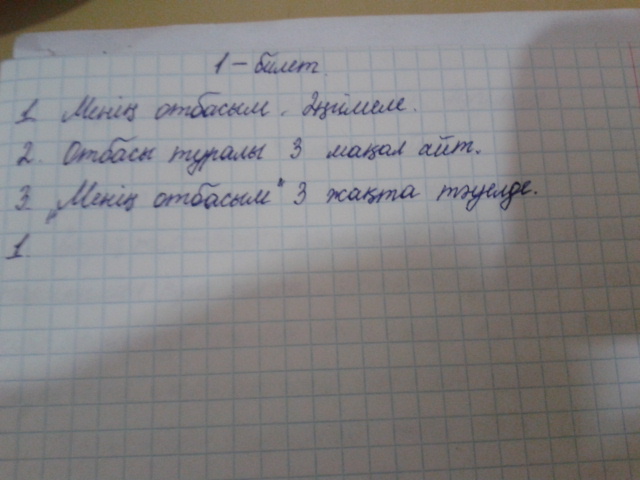 1 - билет.
1. Менің отбасым. Әңгімеле.
2. Отбасы туралы 3 мақал айт.
3. „Менің отбасым" 3 жақта тәуелде.
1.